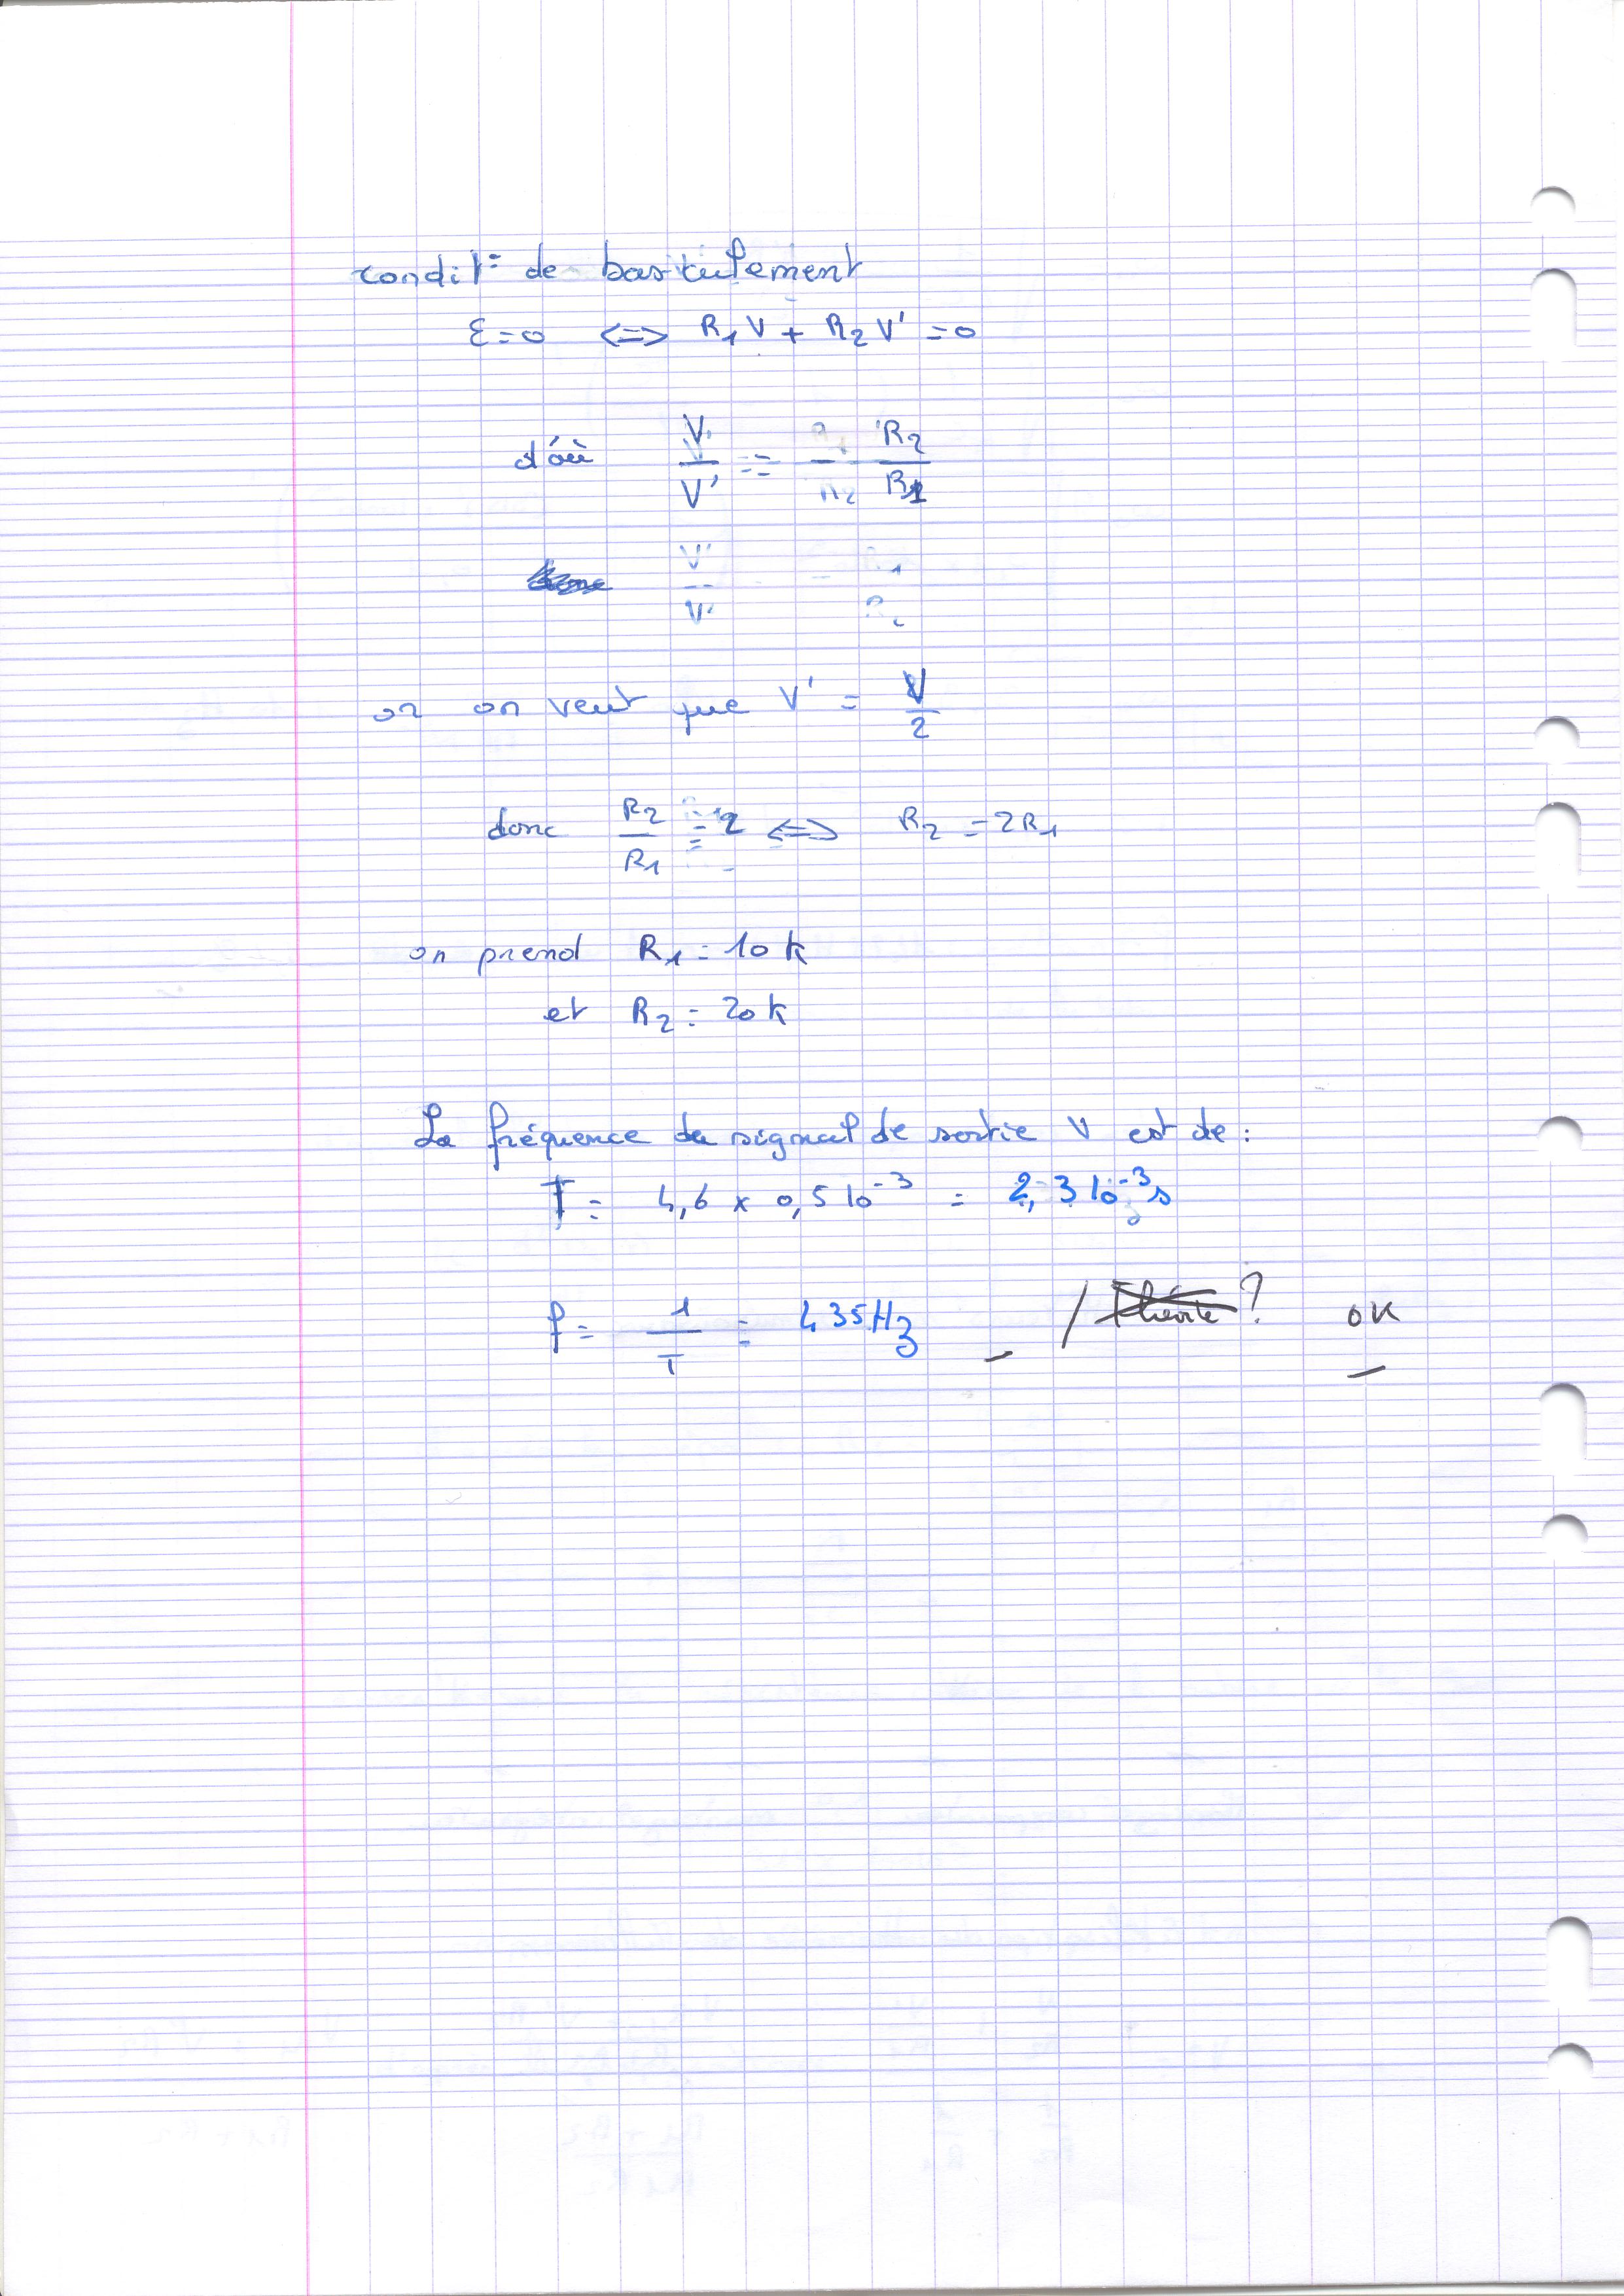 condit° de basculement
ε=0 <=> R1V + R2V' =0
d'où V/V' = - R2/R1
or on veut que V' = V/2
donc R2/R1 = 2 <=> R2 = 2R1
on prend R1 = 10 k
et R2 = 20k
La fréquence du signal de sortie V est de :
T = 4,6 x 0,5 10^-3 = 2,3 10^-3 s
f = 1/T = 435Hz / Théorie ? OK